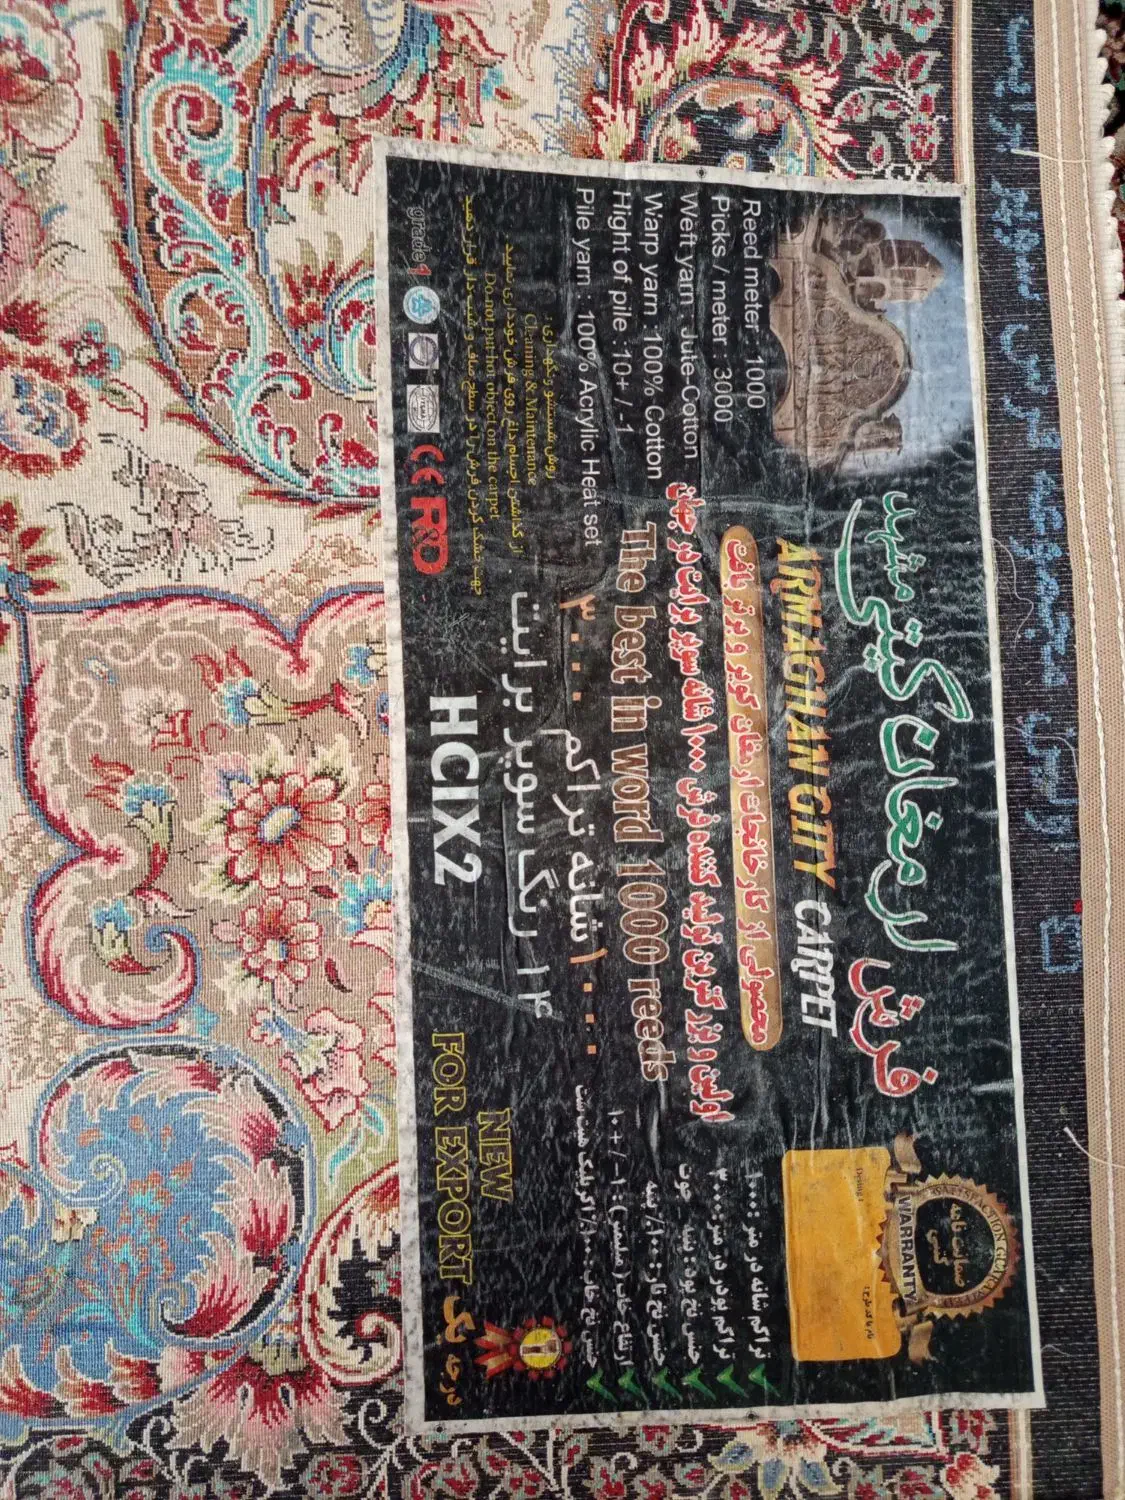 فرش ارمغان گیتی مشهد
ARMAGHAN CITY CARPET
محصولی از کارخانجات ارمغان کویر و برتر بافت
اولین و بزرگترین تولید کننده فرش ۱۰۰۰ شانه سوپر برایت در جهان
The best in word 1000 reeds
۱۰۰۰ شانه تراکم ۳۰۰۰
۱۴ رنگ سوپر برایت
HCIX2
Reed meter : 1000
Picks / meter : 3000
Weft yarn : Jute-Cotton
Warp yarn :100% Cotton
Hight of pile :10+ / -1
Pile yarn : 100% Acrylic Heat set
روش شستشو و نگهداری
Cleaning & Maintenance
از گذاشتن اجسام داغ روی فرش خودداری نمایید
Do not put hot object on the carpet
grade 1
CE RD
WARRANTY
ضمانت نامه
Design :
تراکم شانه در متر : ۱۰۰۰
تراکم پود در متر : ۳۰۰۰
جنس نخ پود : پنبه - جوت
جنس نخ تار : ۱۰۰٪ پنبه
ارتفاع خاب ( میلیمتر ) : ۱- / +۱۰
جنس نخ خاب : ۱۰۰٪ اکریلیک هیت ست
NEW
FOR EXPORT
درجه یک